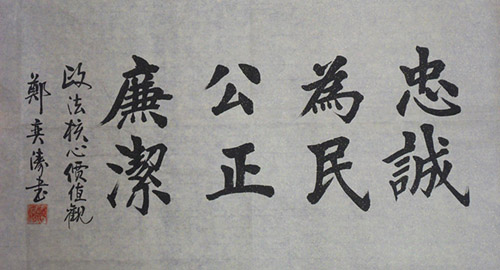 忠誠
為民
公正
廉潔
政法核心價值觀
鄭奕濤書